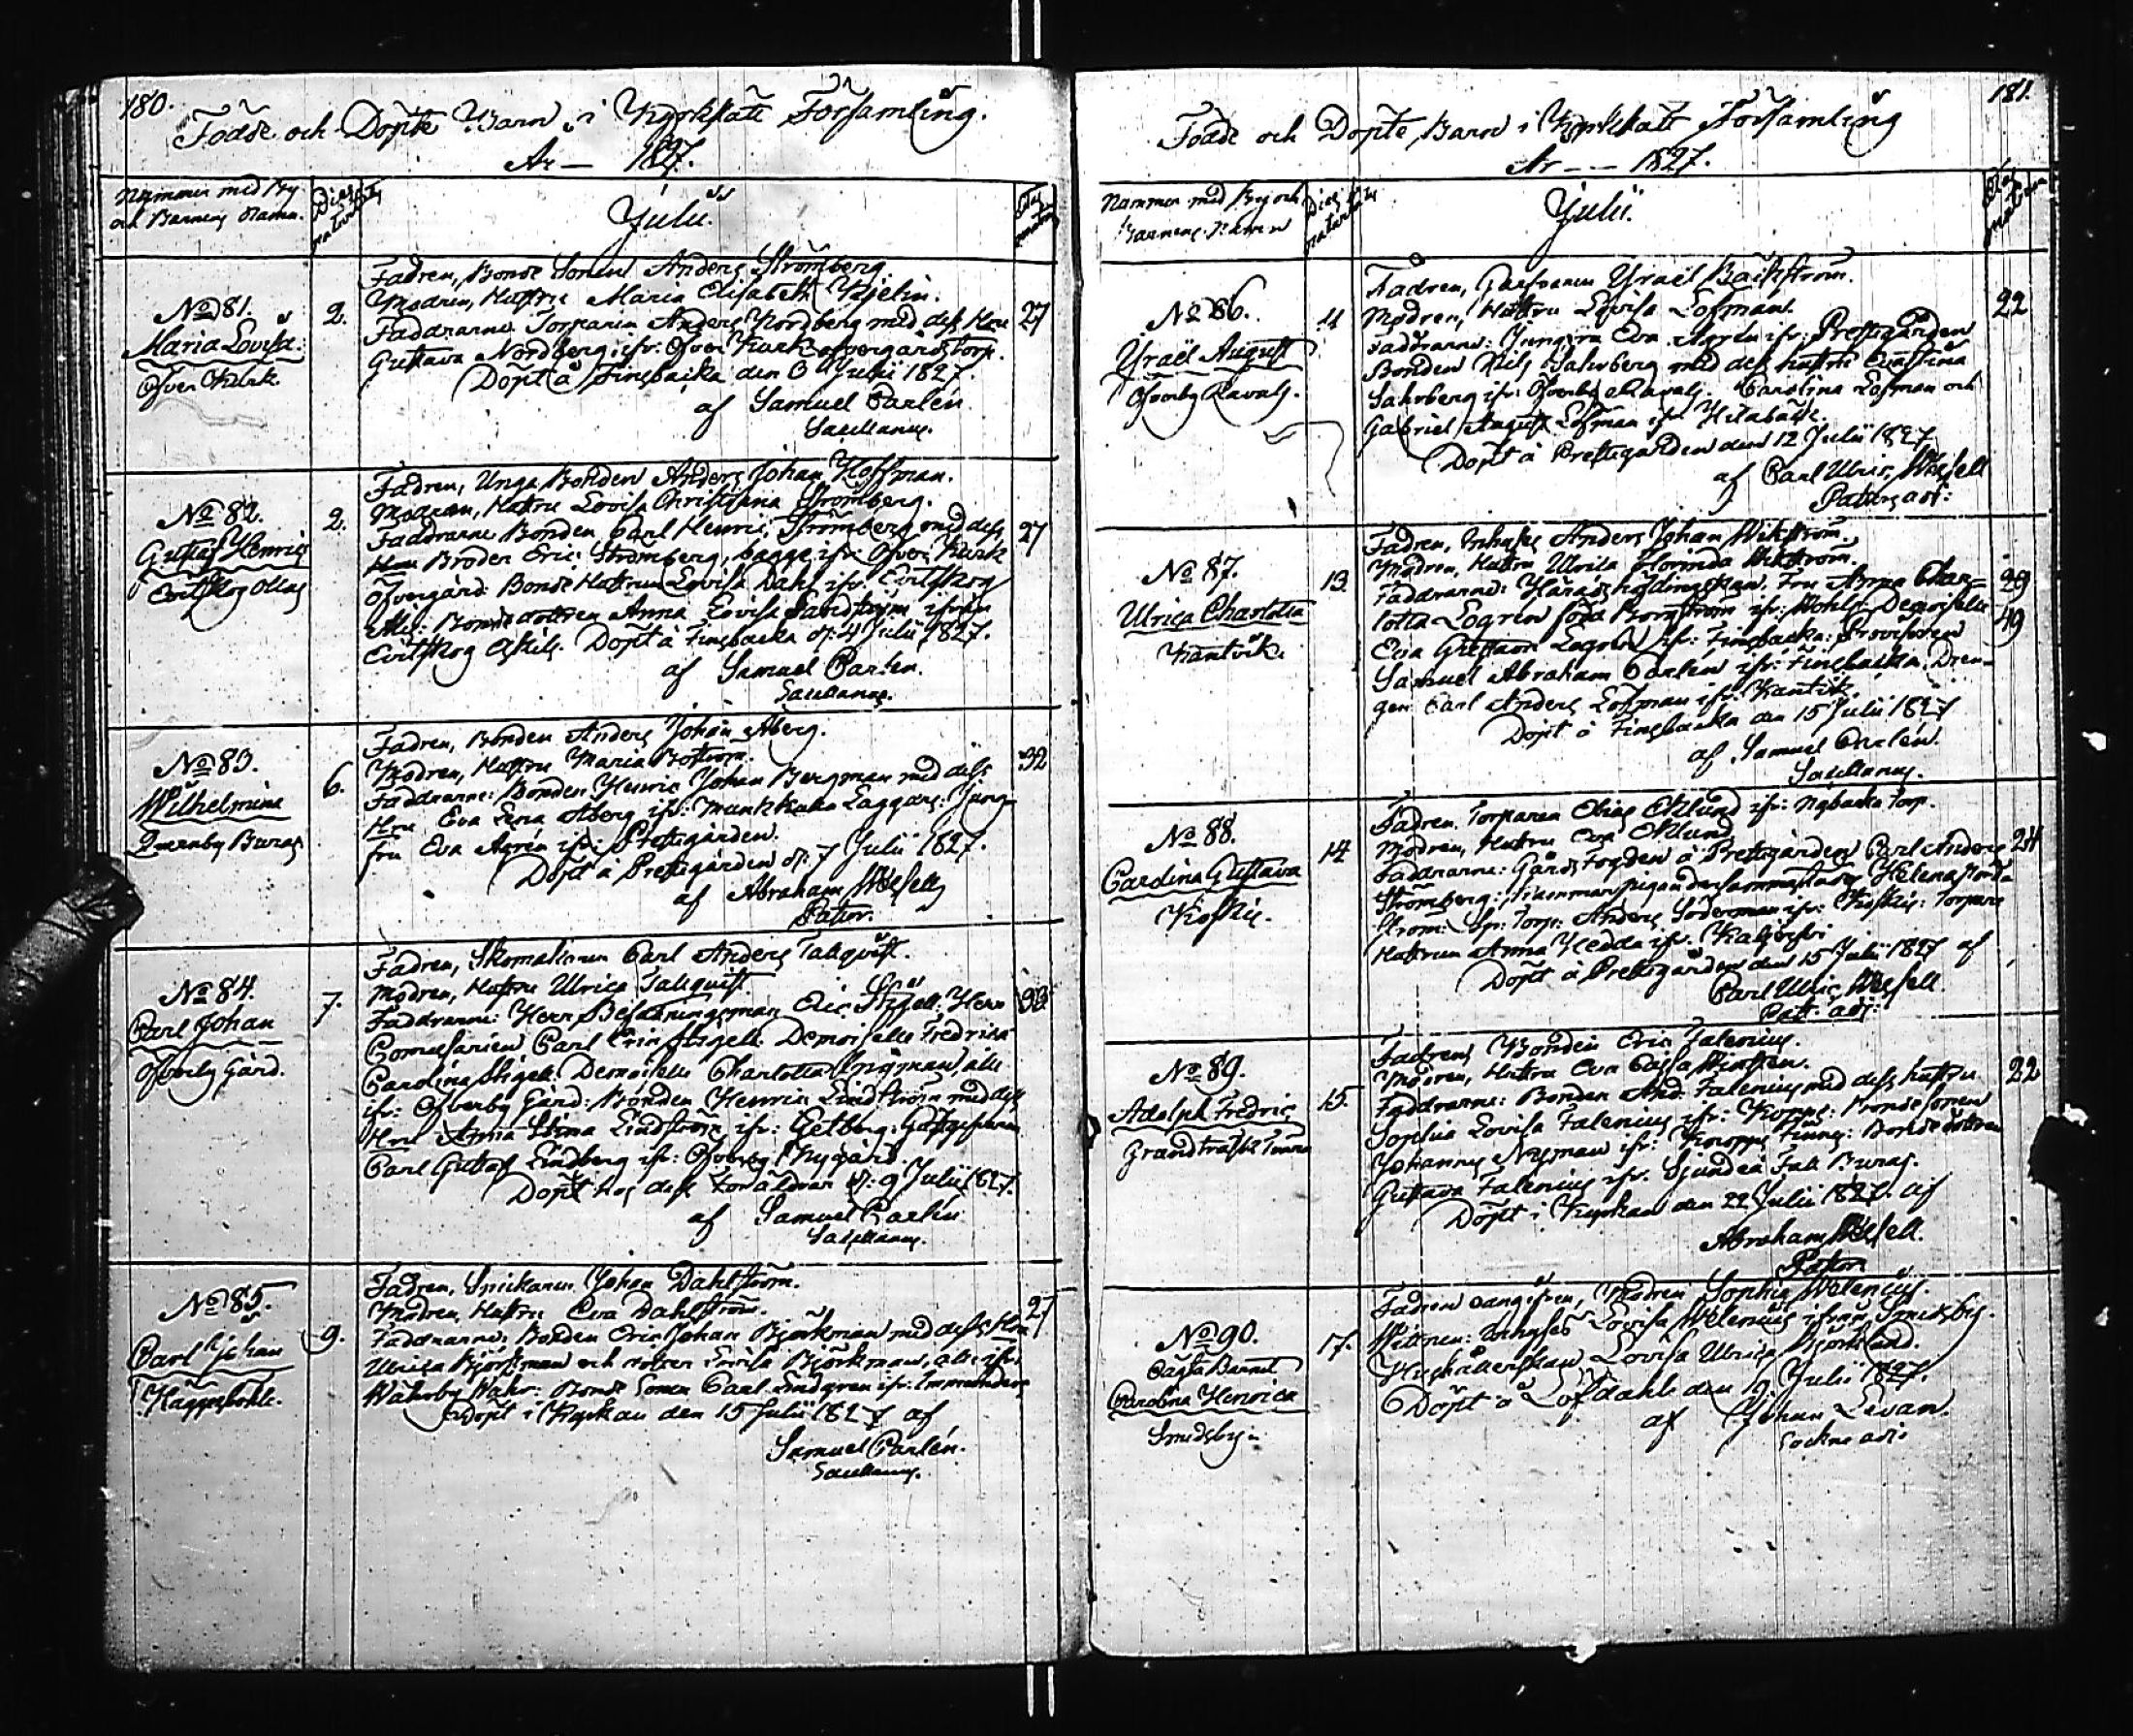 180.
Födde och Döpte Barn i Kyrkslätt Församling.
År — 1827.
Nummer med By
och Barnens Namn.
Dies
natavitatis
Julii
No 81.
Maria Lovisa.
Öfver Kurk.
2.
Fadren, Bonde Sonen Anders Strömberg.
Modren, Hustru Maria Elisabeth
Faddrarne Torparen Anders Nordberg med dess Hru
Gustava Nordberg, ifr: Öfver Kurk öfvergårds torp.
Döpt å Finsbacka den 3 Julii 1827.
af Samuel Carlén
Sacellanus.
27
No 82.
Gustaf Henric
Evitskog Ollas
2.
Fadren, Unga Bonden Anders Johan Hoffman.
Modren, Hustru Lovisa Christina Strömberg.
Faddrarne Bonden Carl Henric Strömberg med dess
Broder Eric Strömberg, bägge ifr: Öfver Kurk
Öfvergård: Bonde Hustrun Lovisa Dahl ifr: Evitskog
Bonde dottren Anna Lovisa Sandström ifrån
Evitskog Eskils. Döpt å Finsbacka d: 4 Julii 1827.
af Samuel Carlén.
Sacellanus.
27
No 83.
Wilhelmina
Qvarnby Buras
6.
Fadren, Bonden Anders Johan Åberg.
Modren, Hustru Maria
Faddrarne: Bonden Henric Johan Bergman med dess
Hru Eva Lena Åberg ifr: Munkkulla Laggars: Jung-
fru Eva Agrén ifr: Prestegården.
Döpt å Prestegården d: 7 Julii 1827.
af Abraham Wesell
Pastor.
32
No 84.
Carl Johan
Öfverby Gård.
7.
Fadren, Skomakaren Carl Anders Tallqvist.
Modren, Hustru Ulrica Tallqvist
Faddrarne: Herr Besickningsman Eric Stigell: Herr
Carl Eric Stigell: Demoiselle Fredrica
Carolina Stigell: Demoiselle Charlotta Nyman, alla
ifr: Öfverby Gård: Bonden Henric Lindström med dess
Hru Anna Stina Lindström ifr: Getberg:
Carl Gustaf Lindberg ifr: Öfverby Nygård
Döpt hos dess Föräldrar d: 9 Julii 1827.
af Samuel Carlén
Sacellanus.
33
No 85.
Carl Johan
Häggesböhle.
9.
Fadren, Snickaren Johan Dahlström.
Modren, Hustru Eva Dahlström.
Faddrarne: Bonden Eric Johan Björkman med dess Hru
Ulrica Björkman och dotter Lovisa Björkman, alla ifr:
Wahrs: Bonde Sonen Carl Lindgren ifr:
Döpt i Kyrkan den 15 Julii 1827 af
Samuel Carlén.
Sacellanus.
27
181.
Födde och Döpte, Barn i Kyrkslätt Församling
År — 1827.
Nummer med By och
Barnens Namn
Dies
natavitatis
Julii.
No 86.
Israël August
Öfverby Ravals.
11
Fadren, Gästgifvaren Israël Bäckström.
Modren, Hustru Lovisa Löfman.
Faddrarne: Jungfru Eva Agrén ifr: Prestegården
Bonden Nils Sahrberg med dess hustru Eva Stina
Sahrberg ifr: Öfverby Ravals. Carolina Löfman och
Gabriel August Löfman ifr: Hilabacke.
Döpt å Prestegården den 12 Julii 1827.
af Carl Ulric Wesell
Past: adj:
22
No 87.
Ulrica Charlotta
Kantvik.
13.
Fadren, Inhyses Anders Johan Wikström.
Modren, Hustru Ulrica Florinda Wikström.
Faddrarne: Häradshöfdingskan Fru Anna Char-
lotta Logrén född Bornström ifr: Wohls: Demoiselle
Eva Gustava Logrén ifr: Finsbacka: Provisoren
Samuel Abraham Carlén ifr: Finsbacka: Drän-
gen Carl Anders Löfman ifr: Kantvik.
Döpt å Finsbacka den 15 Julii 1827
af Samuel Carlén.
Sacellanus.
29
49
No 88.
Carolina Gustava
Koskis.
14
Fadren, Torparen Elias Eklund ifr: Nybacka Torp.
Modren, Hustru Eva Eklund
Faddrarne: Gårds Fogden å Prestegården Carl Anders
Strömberg: pigan dersammastädes Helena Nord-
ström: Torp: Anders Söderman ifr: Koskis: Torpare
Hustrun Anna Hedda ifr: Kaljärvi
Döpt å Prestegården den 15 Julii 1827 af
Carl Ulric Wesell
Past: adj:
24
No 89.
Adolph Fredric
Grandträsk Finns
15.
Fadren, Bonden Eric Falenius.
Modren, Hustru Eva Caisa
Faddrarne: Bonden And: Falenius med dess hustru
Sophia Lovisa Falenius ifr: Bonde sonen
Johannes Nyman ifr: Finns: Bonde dottren
Gustava Falenius ifr: Sjundeå Fall Buras.
Döpt i Kyrkan den 22 Julii 1827. af
Abraham Wesell.
Pastor
22
No 90.
Oägta Barnet
Carolina Henrica
Smedsby.
17.
Fadren oangifven, Modren Sophia Welenius.
Wittnen: Inhyses Lovisa Welenius ifrån Smedsby.
Hushållerskan Lovisa Ulrica Björklund.
Döpt å Löfdahl den 19 Julii 1827.
af Johan Levan.
Sockne adj: